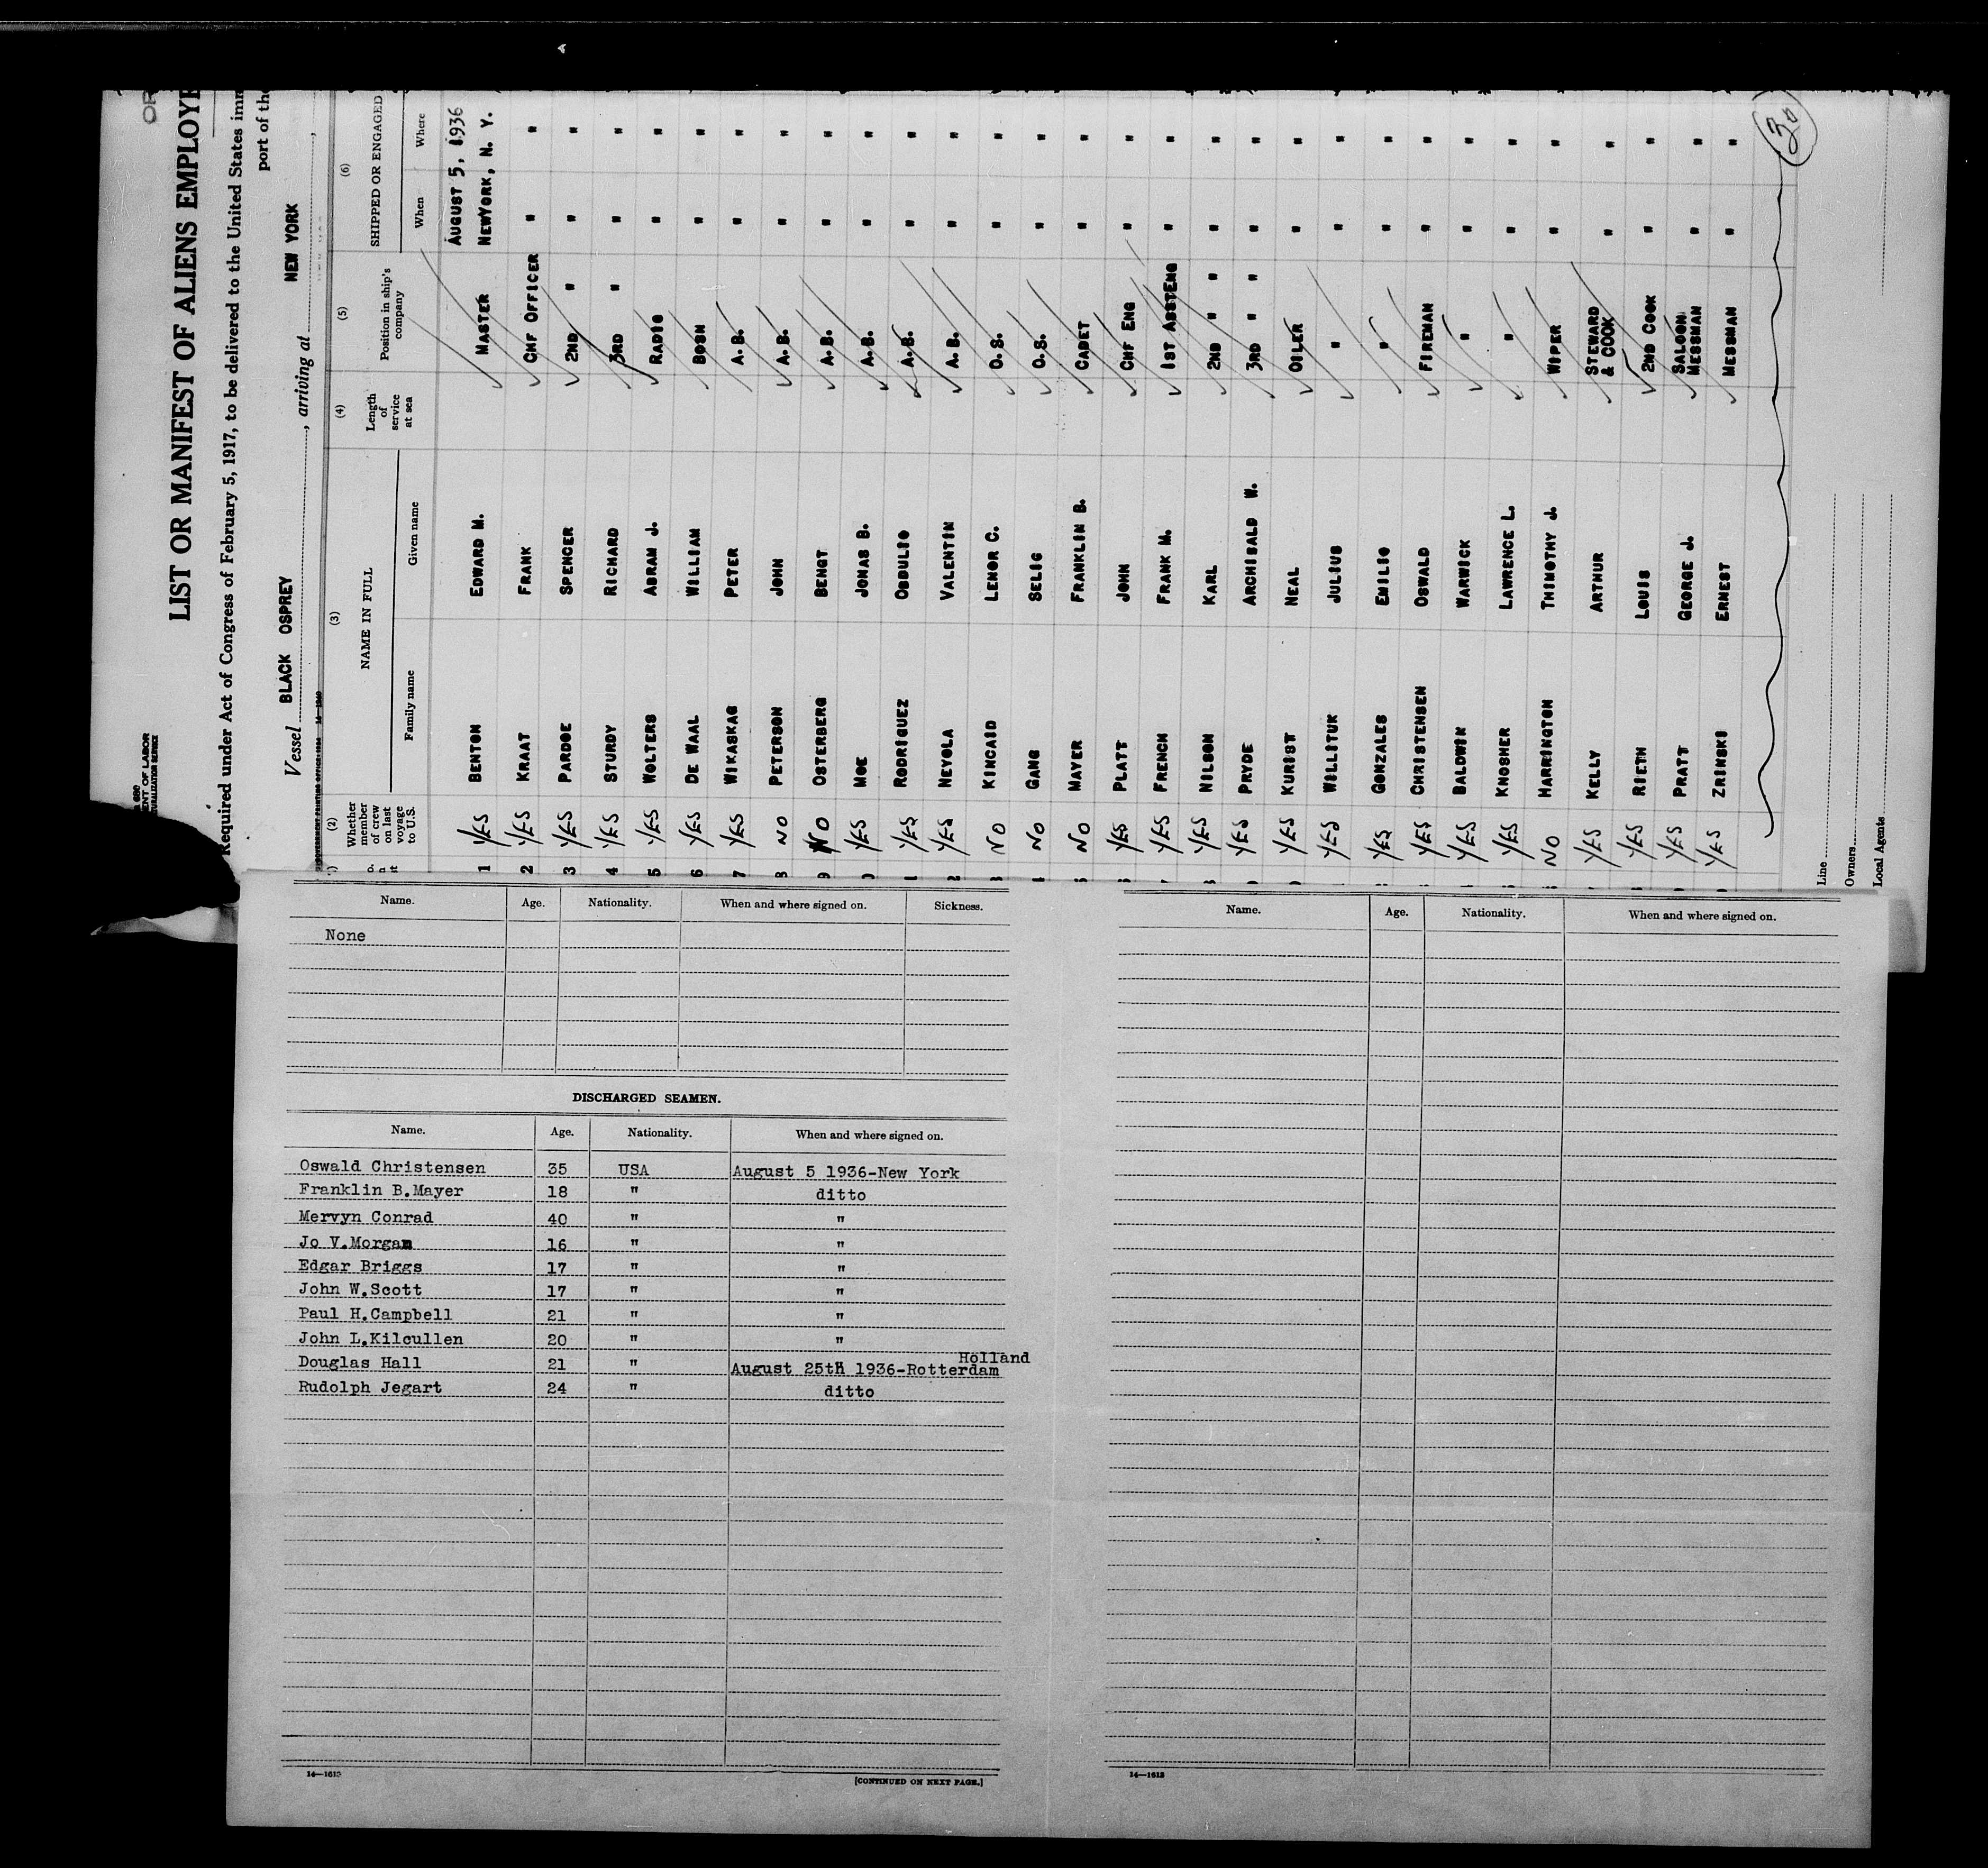 OR
LIST OR MANIFEST OF ALIENS EMPLOYE
Required under Act of Congress of February 5, 1917, to be delivered to the United States imm
port of the
Vessel BLACK OSPREY, arriving at NEW YORK
ENT OF LABOR
(2) (3) (4) (5) (6)
Whether member of crew on last voyage to U.S. NAME IN FULL Length of service at sea Position in ship's company SHIPPED OR ENGAGED
Family name Given name When Where
AUGUST 5, 1936
1 YES BENTON EDWARD M. MASTER NEWYORK, N. Y.
2 YES KRAAT FRANK CHF OFFICER " "
3 YES PARDOE SPENCER 2ND " " "
4 YES STURDY RICHARD 3RD " " "
5 YES WOLTERS ABRAM J. RADIO " "
6 YES DE WAAL WILLIAM BOSN " "
7 YES WIKASKAS PETER A.B. " "
8 NO PETERSON JOHN A.B. " "
9 NO OSTERBERG BENGT A.B. " "
0 YES MOE JONAS B. A.B. " "
1 YES RODRIGUEZ OBDULIO A.B. " "
2 YES NEYOLA VALENTIN A.B. " "
3 NO KINCAID LENOR C. O.S. " "
4 NO GANG SELIG O.S. " "
NO MAYER FRANKLIN B. CADET " "
YES PLATT JOHN CHF ENG " "
YES FRENCH FRANK M. 1ST ASSTENG " "
YES NILSON KARL 2ND " " " "
YES PRYDE ARCHIBALD W. 3RD " " " "
YES KURIST NEAL OILER " "
YES WILLITUK JULIUS " " "
YES GONZALES EMILIO " " "
YES CHRISTENSEN OSWALD FIREMAN " "
YES BALDWIN WARWICK " " "
YES KNOSHER LAWRENCE L. " " "
NO HARRINGTON THIMOTHY J. WIPER " "
YES KELLY ARTHUR STEWARD & COOK " "
YES RIETH LOUIS 2ND COOK " "
YES PRATT GEORGE J. SALOON MESSMAN " "
YES ZRINSKI ERNEST MESSMAN " "
30
Line
Owners
Local Agents
Name. Age. Nationality. When and where signed on. Sickness.
None
DISCHARGED SEAMEN.
Name. Age. Nationality. When and where signed on.
Oswald Christensen 35 USA August 5 1936-New York
Franklin B.Mayer 18 " ditto
Mervyn Conrad 40 " "
Jo V.Morgan 16 " "
Edgar Briggs 17 " "
John W.Scott 17 " "
Paul H.Campbell 21 " "
John L.Kilcullen 20 " "
Holland
Douglas Hall 21 " August 25th 1936-Rotterdam
Rudolph Jegart 24 " ditto
14—1613
[CONTINUED ON NEXT PAGE.]
Name. Age. Nationality. When and where signed on.
14—1613